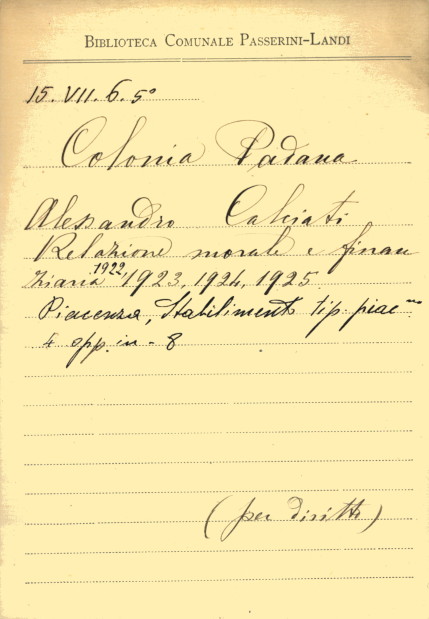 BIBLIOTECA COMUNALE PASSERINI-LANDI
15. VII. 6. 5°
Colonia Padana
Alessandro Calciati
Relazione morale e finan
ziaria 1922 1923, 1924, 1925
Piacenza, Stabiliment tip. piac
4 opp. in - 8
(per diritto)